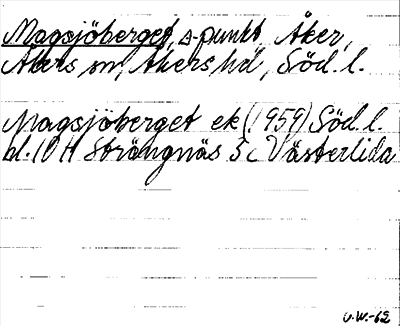 Magsjöberget, s-punkt, Åker,
Åkers sn, Åkers hd, Söd. l.
Magsjöberget ek (1959) Söd. l.
bl. 10 H Strängnäs 5 c Västerlida
U.W.-62